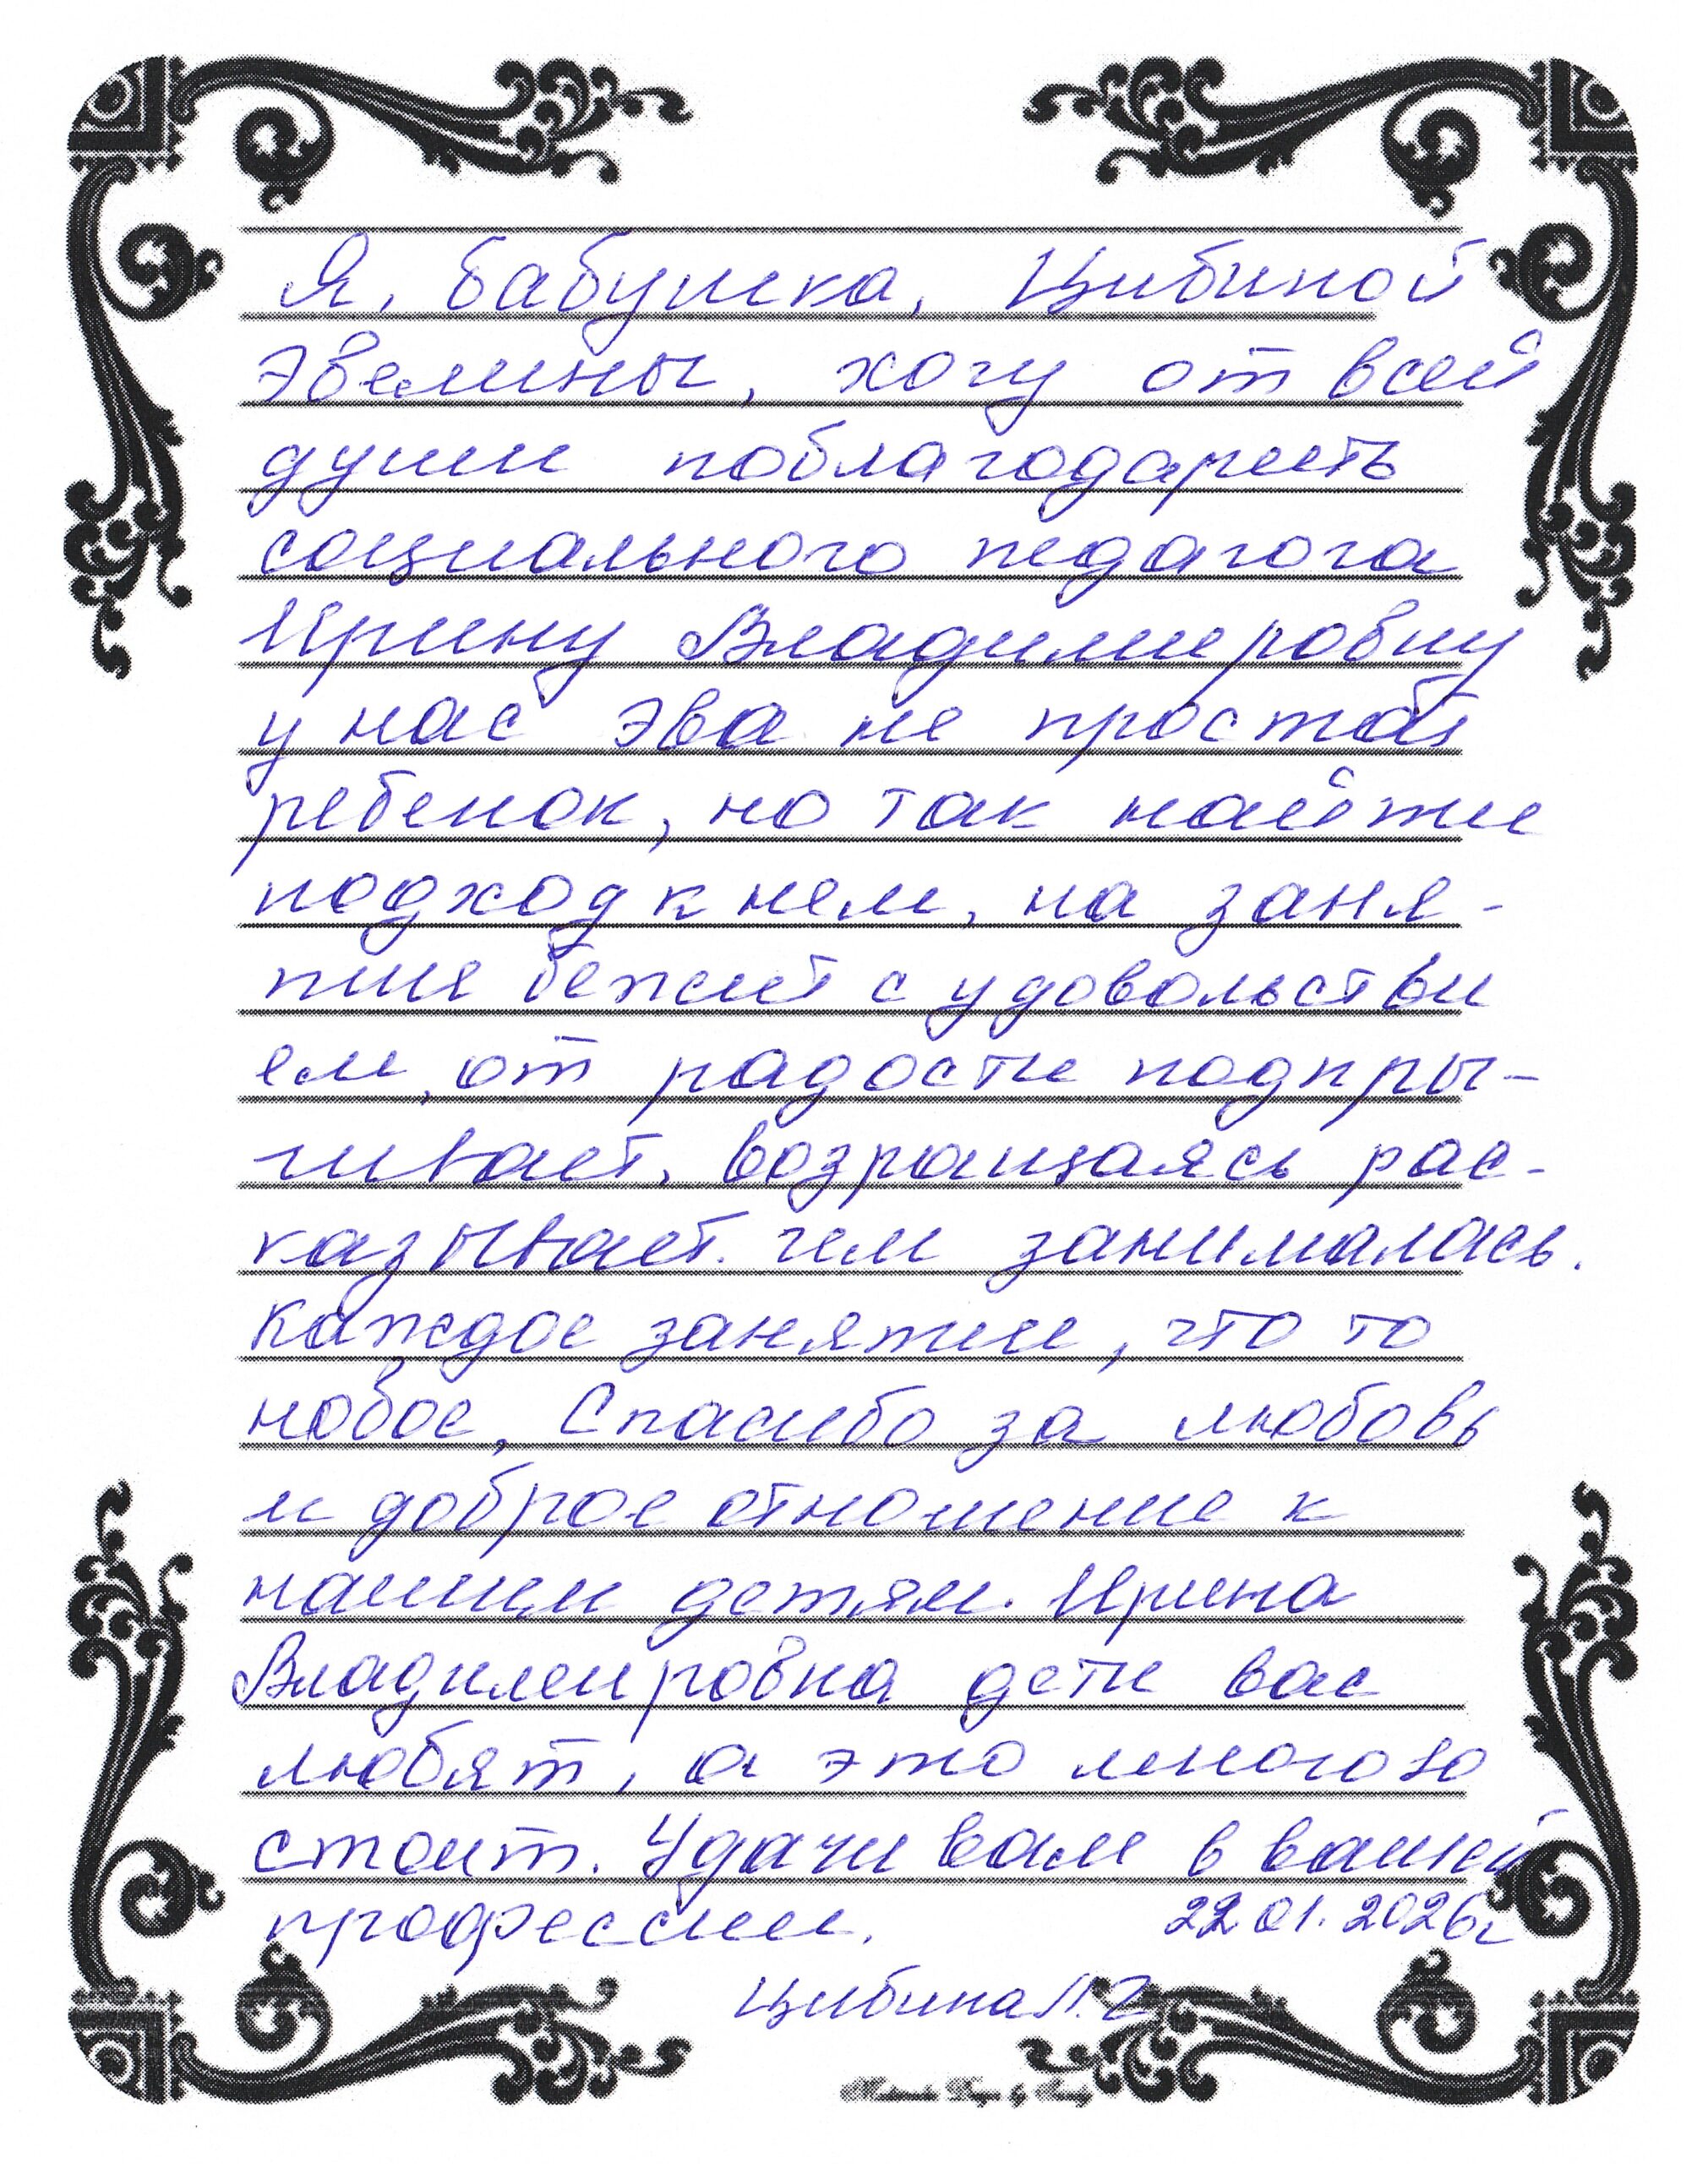 Я, бабушка, Цибиной
Эвелины, хочу от всей
души поблагодарить
социального педагога
Ирину Владимировну
у нас Эва не простой
ребенок, но так найти
подход к нем, на заня-
тие бежит с удовольстви
ем, от радости подпры-
гивает, возращаясь рас-
казывает чем занималась.
Каждое занятие, что то
новое. Спасибо за любовь
и доброе отношение к
нашим детям. Ирина
Владимировна дети вас
любят, а это многого
стоит. Удачи вам в вашей
профессии. 22 01. 2026г
Цибина Л. Г